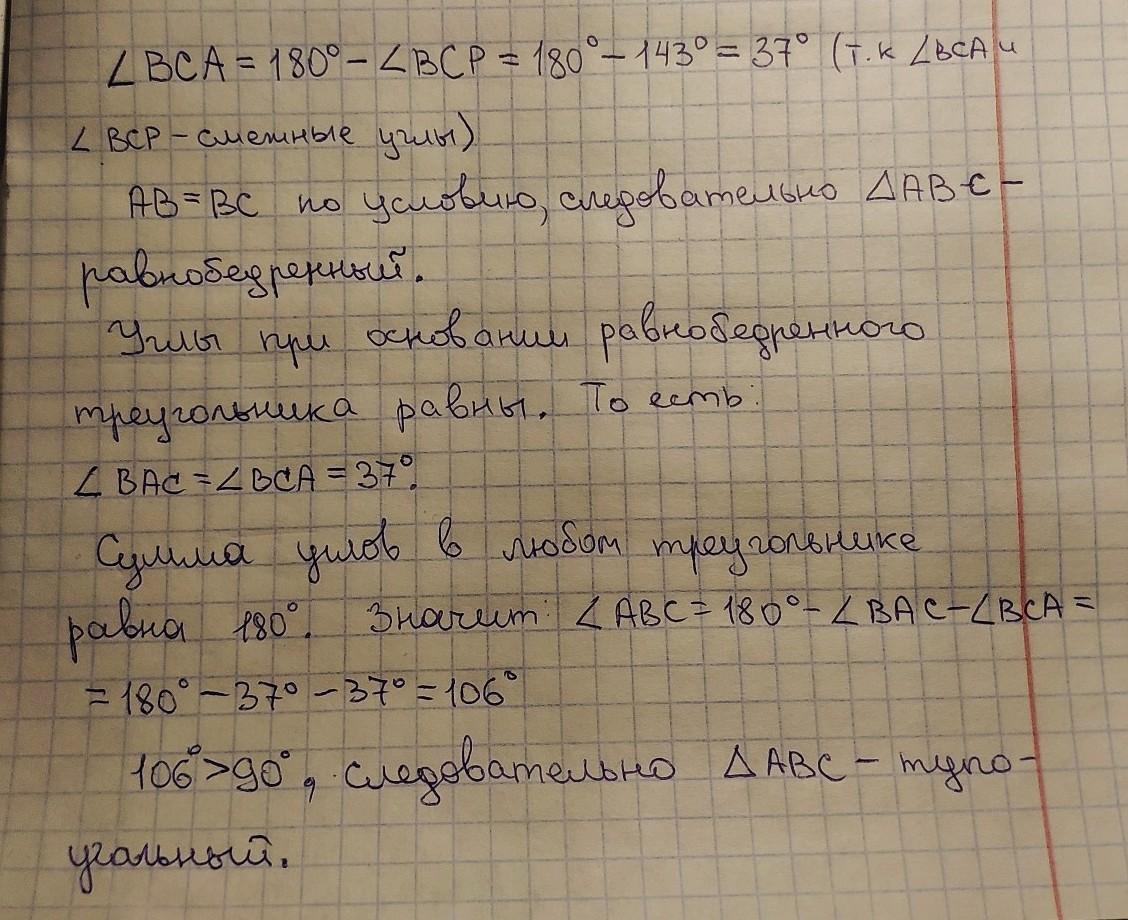 ∠BCA = 180° - ∠BCP = 180° - 143° = 37° (т.к ∠BCA и
∠BCP - смежные углы)
AB = BC по условию, следовательно △ABC -
равнобедренный.
Углы при основании равнобедренного
треугольника равны. То есть:
∠BAC = ∠BCA = 37°.
Сумма углов в любом треугольнике
равна 180°. Значит: ∠ABC = 180° - ∠BAC - ∠BCA =
= 180° - 37° - 37° = 106°
106° > 90°, следовательно △ABC - тупо-
угальный.